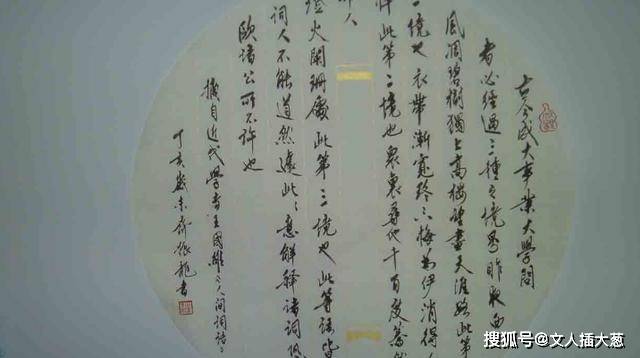 古今成大事業大學問
者必經過三種之境界昨夜西
風凋碧樹獨上高樓望盡天涯路此第
一境也衣帶漸寬終不悔為伊消得
悴此第二境也衆裏尋他千百度驀然
人
燈火闌珊處此第三境也此等語皆
詞人不能道然遽此意解釋諸詞恐
歐諸公所不許也
摘自近代學者王國維之人間詞話
丁亥歲末齊振龍書
搜狐号@文人插大葱